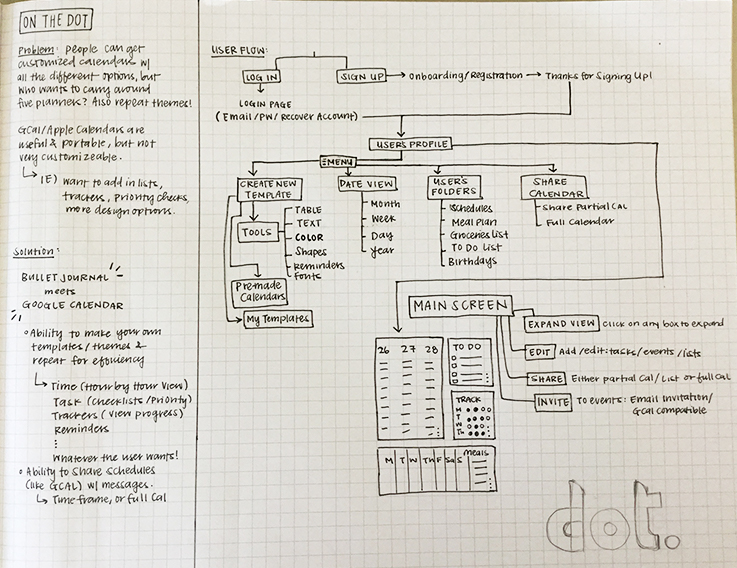 ON THE DOT
Problem: People can get
customized calendars w/
all the different options, but
who wants to carry around
five planners? Also repeat themes!
GCal/Apple Calendars are
useful & portable, but not
very customizeable.
↳ IE) want to add in lists,
trackers, priority checks,
more design options.
Solution:
BULLET JOURNAL
meets
GOOGLE CALENDAR
Ability to make your own
templates/themes &
repeat for efficiency
↳ Time (Hour by Hour View)
Task (Checklists/Priority)
Trackers (View progress)
Reminders
⋮
Whatever the user wants!
Ability to share schedules
(like GCAL) w/ messages.
↳ Time frame, or full Cal
USER FLOW:
LOG IN
SIGN UP → Onboarding/Registration → Thanks for Signing Up!
LOGIN PAGE
(Email/PW/Recover Account)
USER'S PROFILE
MENU
CREATE NEW
TEMPLATE
TOOLS
TABLE
TEXT
COLOR
Shapes
Reminders
Fonts
Premade
Calendars
My Templates
DATE VIEW
Month
Week
Day
Year
USER'S
FOLDERS
Schedules
Meal Plan
Groceries List
TO DO List
Birthdays
SHARE
CALENDAR
Share Partial Cal
Full Calendar
MAIN SCREEN
EXPAND VIEW Click on any box to expand
EDIT Add/edit: tasks/events/lists
SHARE Either partial Cal/List or full Cal
INVITE To events: Email Invitation/
Gcal compatible
26 27 28
TO DO
TRACK
M
T
W
Th
M T W Th F Sa S
Meals
dot.